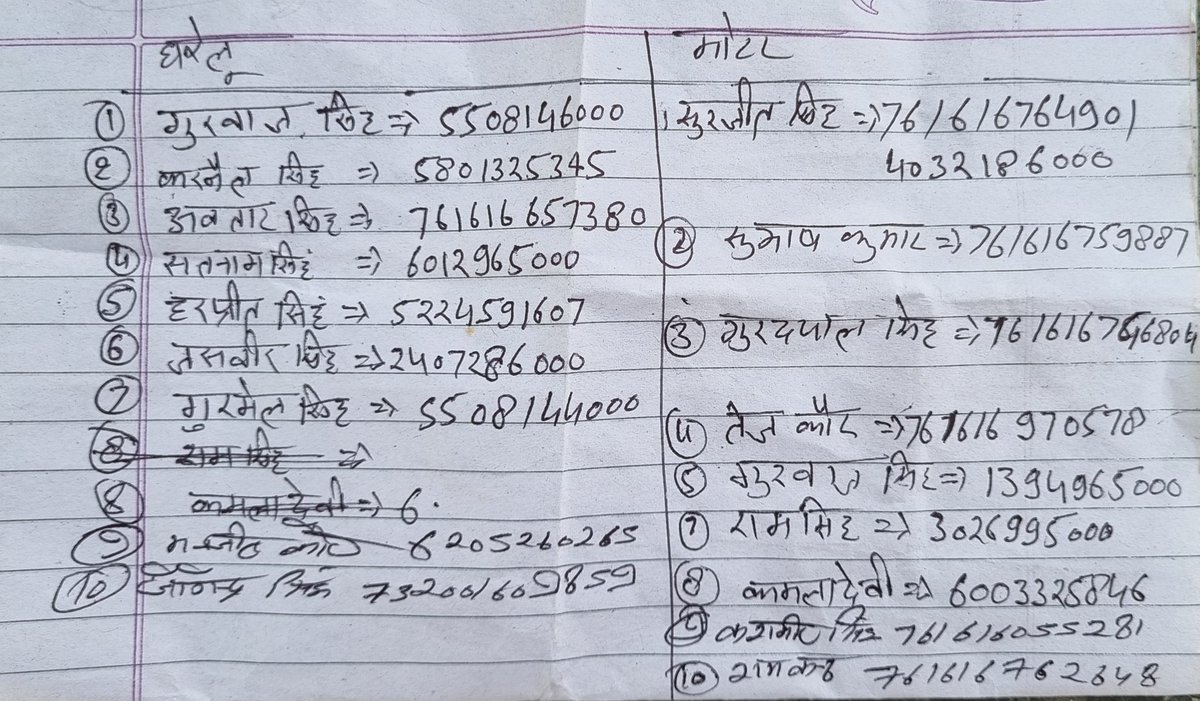 घरेलू
① गुरबाज सिंह => 5508146000
② करनैल सिंह => 5801325345
③ अवतार सिंह => 761616657380
④ सतनाम सिंह => 6012965000
⑤ हरप्रीत सिंह => 5224591607
⑥ जसवीर सिंह => 2407286000
⑦ गुरमेल सिंह => 5508144000
⑧ राम सिंह =>
⑧ कमला देवी => 6.
⑨ मन्जीत कौर 6205260265
⑩ सिंह 732001609859
मोटर
। सुरजीत सिंह => 761616764901
4032186000
② सुभाष कुमार => 761616759887
③ गुरदयाल सिंह =>
④ तेज कौर => 761616970578
⑤ सिंह => 1394965000
⑦ राम सिंह => 3026995000
⑧ कमला देवी => 6003325846
⑨ कशमीर सिंह 761616055281
⑩ 761616762348